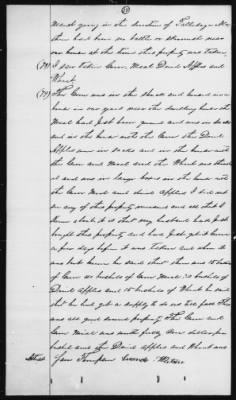 went going in the direction of Talladega No
other had been no battle or skirmish near
our house at the time this property was taken
(78) I saw taken Corn Meal Dried Apples and
Wheat
(79) The Corn was in the shuck and housed in a
house in our yard near the dwelling house the
Meal had just been ground and was in sacks
and in the house with the Corn the Dried
Apples were in sacks and in the house with
the Corn and Meal and the Wheat was thrashed
out and was in large boxes in the house with
the Corn Meal and dried Apples I did not
see any of this property measured and all that I
know about it is that my husband had just
bought this property and had just got it home
a few days before it was taken and when it
was put home he said that there was 15 bushels
of Corn 20 bushels of Corn Meal 20 bushels of
Dried Apples and 15 bushels of Wheat he said
that he had got a supply to do two years This
was all good sound property The Corn and
Corn Meal was worth fully One dollar per
bushel and the Dried Apples and Wheat was
Jane Thompson Second Witness